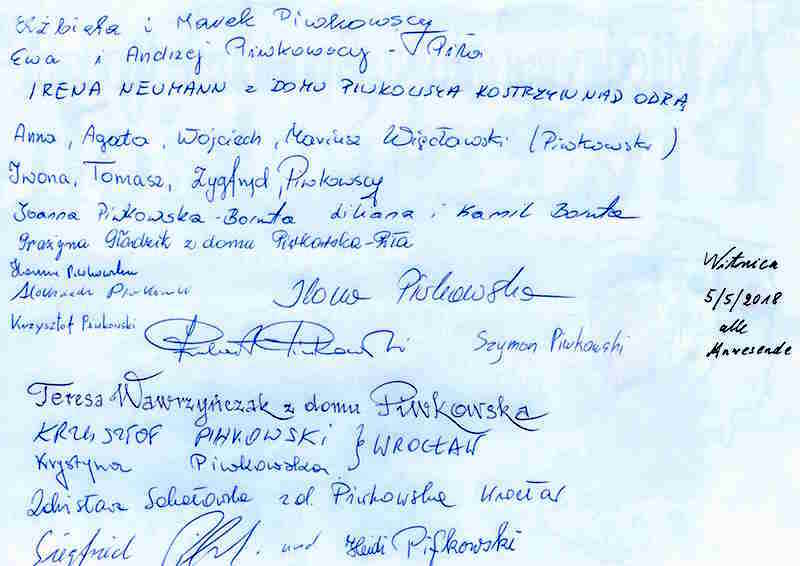 Elżbieta i Marek Piwkowscy
Ewa i Andrzej Piwkowscy - Piła
IRENA NEUMANN z DOMU PIWKOWSKA KOSTRZYN NAD ODRĄ
Anna, Agata, Wojciech, Mariusz Więcławski (Piwkowski)
Iwona, Tomasz, Zygfryd, Piwkowscy
Joanna Piwkowska-Boruta Liliana i Kamil Boruta
Grażyna Gładzik z domu Piwkowska-Piła
Hanna Piwkowska
Aleksandra Piwkowska
Ilona Piwkowska
Krzysztof Piwkowski
Robert Piwkowski
Szymon Piwkowski
Witnica
5/5/2018
alle
Anwesende
Teresa Wawrzyńczak z domu Piwkowska
KRZYSZTOF PIWKOWSKI } WROCŁAW
Krystyna Piwkowska
Zdzisława Sokołowska z d. Piwkowska Wrocław
Siegfried und Heidi Pifkowski